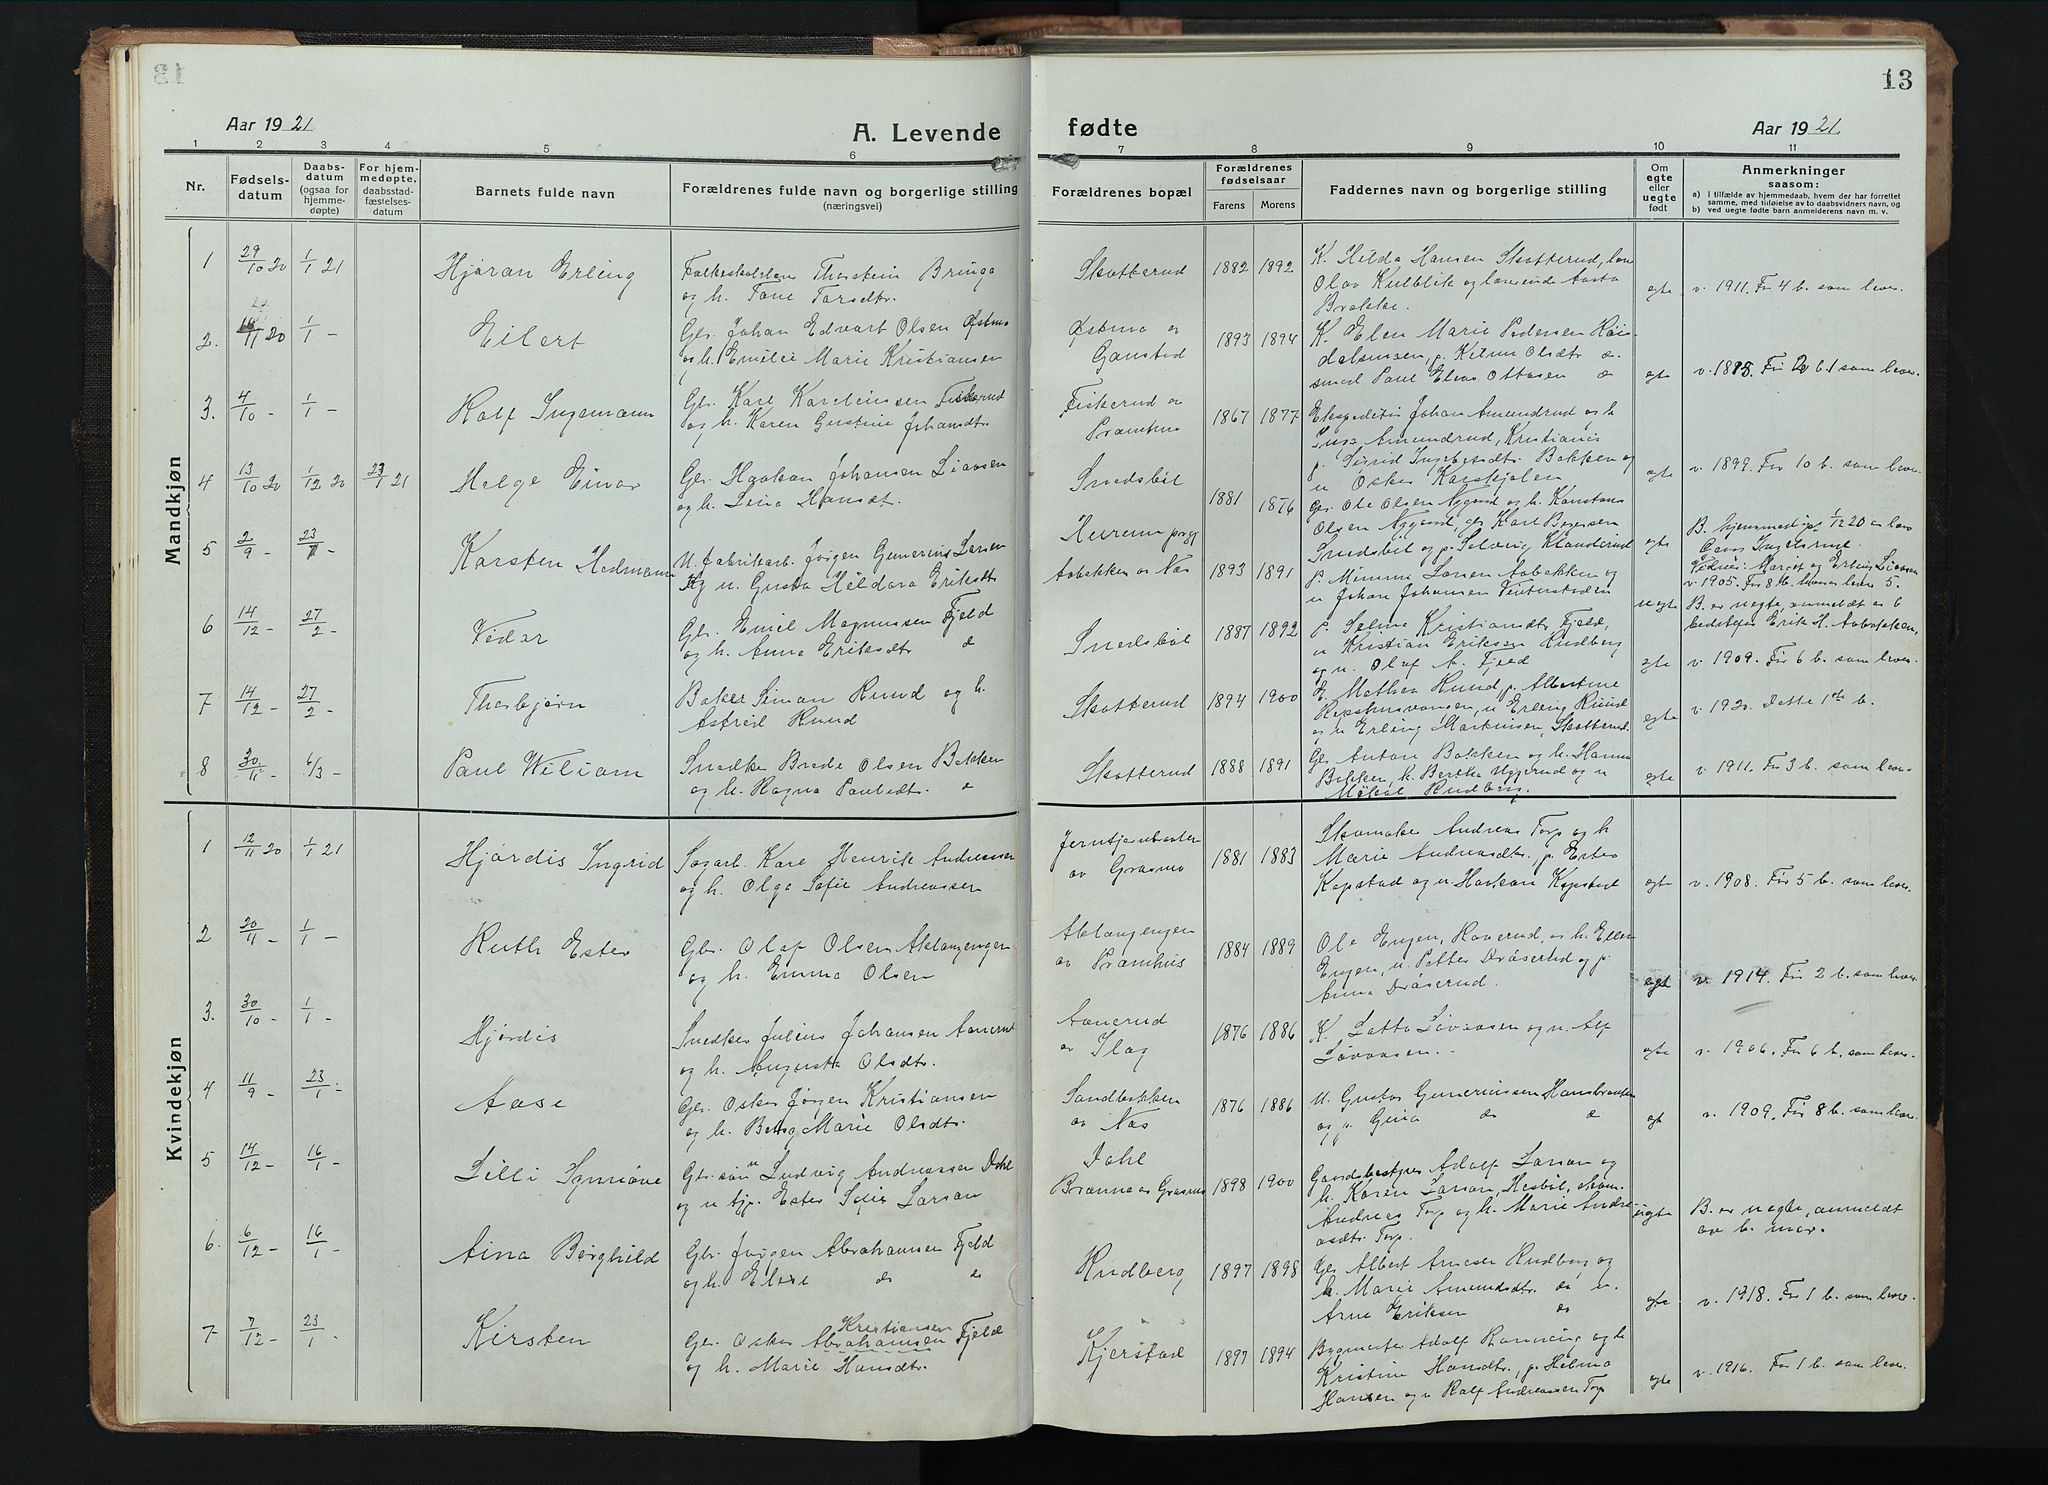 13
Aar 1921
A. Levende fødte
Aar 1921.
1 2 3 4 5 6 7 8 9 10 11
Nr.
Fødselsdatum
Daabsdatum (ogsaa for hjemmedøpte)
For hjemmedøpte, daabsstadfæstelsesdatum
Barnets fulde navn
Forældrenes fulde navn og borgerlige stilling (næringsvei)
Forældrenes bopæl
Forældrenes fødselsaar
Farens Morens
Faddernes navn og borgerlige stilling
Om egte eller uegte født
Anmerkninger saasom:
a) i tilfælde av hjemmedaab, hvem der har forrettet samme, med tilføielse av to daabsvidners navn, og
b) ved uegte fødte barn anmelderens navn m. v.
Mandkjøn
1 29/10 20 1/1 21 Hjøran Erling
Thorstein Bringa
og h. Tone Tarsdtr.
Skotterud 1882 1892
K. Hilda Hansen Skotterud,
Olav og lærerinde Aasta
egte v. 1911. Før 4 b. som lever.
2. 11 20 1/1 - Eilert
Gbr. Johan Edvart Olsen Østmo
og h. Emilie Marie Kristiansen
Østmo av
Gansted 1893 1894
K. Elen Marie Pedersen
Paul Elias Ottosen
egte
3. 4/10 - 1/1 - Rolf Ingemann
Gbr. Karl Karelinssen Fiskerud
og h. Karen Gustine Johansdtr.
Fiskerud av
Pramhus 1867 1877
Ekspeditør Johan Amundrud og h.
Amundrud, Kristiania
egte v. 1899. Før 10 b. som lever.
4 13/10 20 1/12 20 23/1 21 Helge Einar
Gbr. Haakon Johansen Liavsen
og h. Lina Hansdt.
Snedsböl 1881 1876
Gbr. Ole Olsen Nygaard og h. Konstanse
Olsen Nygaard, Karl Børresen
Snedsböl og p. Solveig
egte B. hjemmedøpt 1/12 20 av
v. 1905. Før 8 b. hvorav lever 5.
5 2/9 - 23/1 - Karsten Hedmann
U. fabrikarb. Jørgen Gunerius Larsen
og u. Gusta Hildora Eriksdtr
Aabakken av Nas 1893 1891
p. Minna Larsen Aabakken og
u. Johan Johansen
uegte B. er uegte, anmeldt av b
bedstefar Erik H. Aabakken.
6 14/12 - 27/2 - Vidar
Gbr. Emil Magnussen Fjeld
og h. Anna Eriksdtr do
Snedsböl 1887 1892
p. Selma Kristiansdtr. Fjeld,
u. Kristian Eriksen Rudberg
og u. Olaf A. Fjeld
egte v. 1909. Før 6 b. som lever.
7 14/12 - 27/2 - Thorbjørn
Baker Simon Ruud og h.
Astrid Ruud
Skotterud 1894 1900
E. Mathea Ruud, p. Albertine
u. Erling Ruud
og u. Erling Martinsen, Skotterud.
egte v. 1920. Dette 1ste b.
8 30/11 - 6/3 - Paul Wiliam
Snedker Brede Olsen Bakken
og h. Ragna Paulsdt. do
Skotterud 1888 1891
Gbr. Anton Bakken og h. Hanna
Bakken, h. Bertha Nygerud og u.
Mikal Rudberg.
egte v. 1911. Før 3 b. som lever.
Kvindekjøn
1 12/11 20 1/1 21 Hjördis Ingrid
Sagarb. Kare Henrik Andreassen
og h. Olga Sofie Andreassen
Jerntjernbraaten
av Grasmo 1881 1883
Skomaker Andreas Torp og h.
Marie Andreasdtr. p. Ester
Kopstad og u. Haakon Kopstad
egte v. 1908. Før 5 b. som lever.
2 30/11 - 1/1 - Ruth Ester
Gbr. Olaf Olsen Aklangengen
og h. Emma Olsen
Aklangengen
av Pramhus 1884 1889
Ole Engen, Raverud, og h. Ellen
Engen, u. Petter Dröserud og p.
Anna Dröserud.
egte v. 1914. Før 2 b. som lever.
3. 30/10 - 1/1 - Hjördis
Snedker Julius Johansen Aanerud
og h. Augusta Olsdtr.
Aanerud
av Slag 1876 1886
K. Lotta Lövaasen og u. Alf
Lövaasen.
egte v. 1906. Før 6 b. som lever.
4 11/9 - 23/1 - Aase
Gbr. Oskar Jörgen Kristiansen
og h. Berg Marie Olsdtr.
Sandbekken
av Nas 1876 1886
U. Gustav Gunerius­sen Hansbraaten
og p. Gina do do
egt v. 1909. Før 8 b. som lever.
5 14/12 - 16/1 - Lilli Synnöve
Gbr. sön u Ludvig Andreassen Dahl
og u tjp. Ester Sofie Larsen
Dahl
Brænna av Grasmo 1898 1900
Gaardsbestyrer Adolf Larsen og
h. Karen Larsen, skom.
Andreas Torp og h. Marie Andreasdtr. Torp.
uegte B. er uegte, anmeldt
av b. mor.
6. 6/12 - 16/1 - Aina Borghild
Gbr. Jörgen Abrahamsen Fjeld
og h. Elise do do
Rudberg 1897 1898
Gbr. Albert Arnesen Rudberg og
h. Marie Amundsdtr. do u.
Arne Eriksen do
egte v. 1918. Før 1 b. som lever.
7. 7/12 - 23/1 - Kirsten
Kristiansen
Gbr. Oskar Abrahamsen Fjeld
og h. Marie Hansdtr.
Kjerstad 1897 1894
Bygmester Adolf Rønning og h.
Kristine Hansdtr., p. Hilma
Hansen og u Rolf Andreassen Torp
egte v. 1916. Før 1 b. som lever.